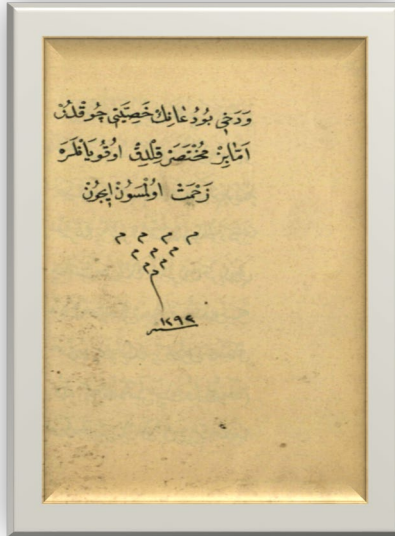 وَدَخِى بُودُعَانِكْ خَصِيَّتِى چُوقْدُرْ
اَمَّا بِزْ مُخْتَصَرْ قِلْدِقْ اوُقُويَانْلَرَه
زَحْمَتْ اوُلْمَسُونْ اِيچُونْ
م م م م
م م م
م م م
م
سنه ١٢٩٢